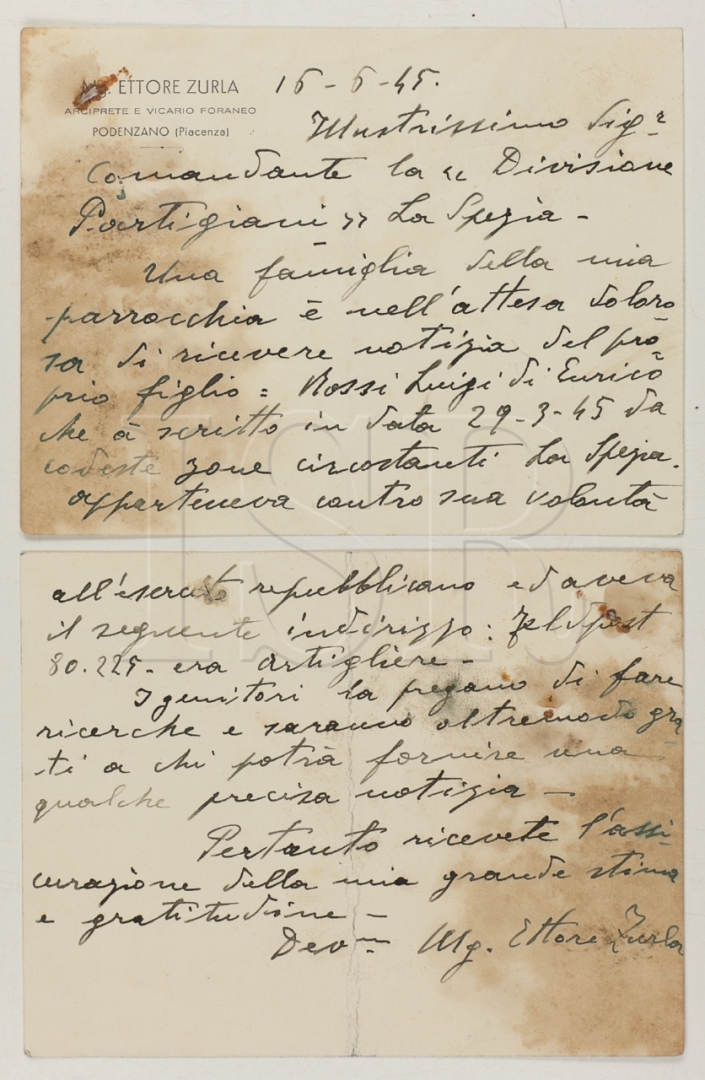 Mg. ETTORE ZURLA
ARCIPRETE E VICARIO FORANEO
PODENZANO (Piacenza)
16-6-45.
Illustrissimo Sig.r
Comandante la « Divisione
Partigiani » La Spezia -
Una famiglia della mia
parrocchia è nell'attesa doloro
sa di ricevere notizia del pro=
prio figlio = Rossi Luigi di Enrico
che à scritto in data 29-3-45 da
codeste zone circostanti La Spezia.
apparteneva contro sua volontà
all'esercito repubblicano ed aveva
il seguente indirizzo: Feldpost
80.225- era artigliere -
I genitori la pregano di fare
ricerche e saranno oltremodo gra
ti a chi potrà fornire una
qualche precisa notizia -
Pertanto ricevete l'assi-
curazione della mia grande stima
e gratitudine -
Dev.mo Mg. Ettore Zurla
ISR